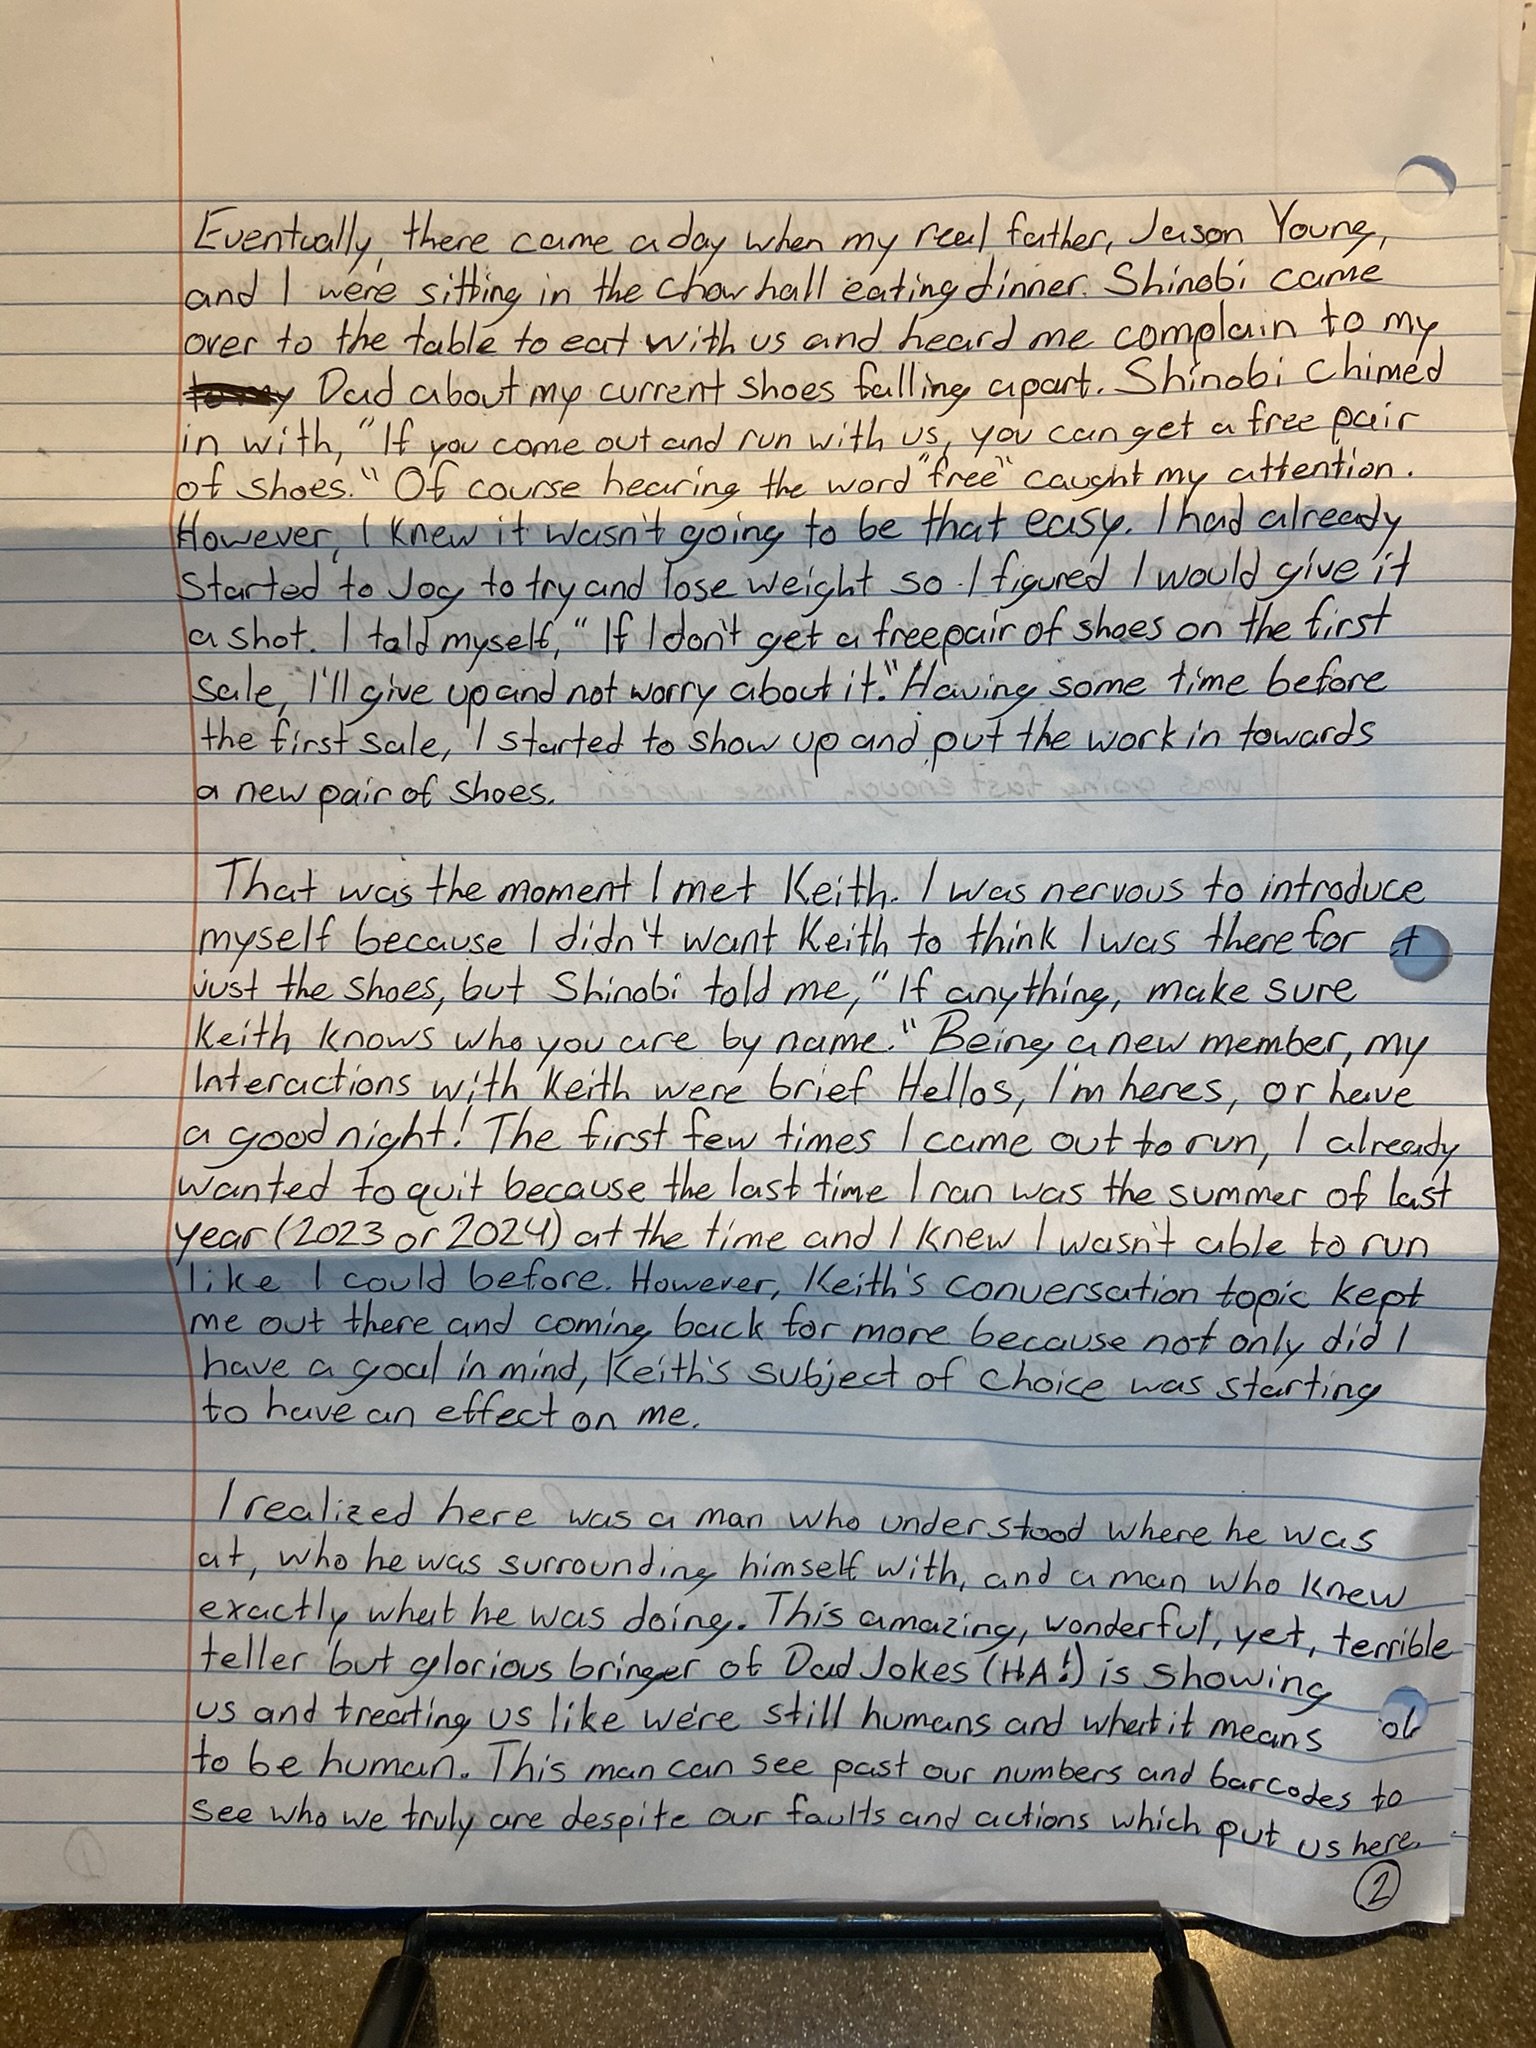 Eventually, there came a day when my real father, Jason Young,
and I were sitting in the chow hall eating dinner. Shinobi came
over to the table to eat with us and heard me complain to my
to my Dad about my current shoes falling apart. Shinobi chimed
in with, "If you come out and run with us, you can get a free pair
of shoes." Of course hearing the word "free" caught my attention.
However, I knew it wasn't going to be that easy. I had already
started to Jog to try and lose weight so I figured I would give it
a shot. I told myself, "If I don't get a free pair of shoes on the first
sale, I'll give up and not worry about it." Having some time before
the first sale, I started to show up and put the work in towards
a new pair of shoes.
That was the moment I met Keith. I was nervous to introduce
myself because I didn't want Keith to think I was there for
just the shoes, but Shinobi told me, "If anything, make sure
Keith knows who you are by name." Being a new member, my
Interactions with Keith were brief Hellos, I'm heres, or have
a good night! The first few times I came out to run, I already
wanted to quit because the last time I ran was the summer of last
year (2023 or 2024) at the time and I knew I wasn't able to run
like I could before. However, Keith's conversation topic kept
me out there and coming back for more because not only did I
have a goal in mind, Keith's subject of choice was starting
to have an effect on me.
I realized here was a man who understood where he was
at, who he was surrounding himself with, and a man who knew
exactly what he was doing. This amazing, wonderful, yet, terrible
teller but glorious bringer of Dad Jokes (HA!) is showing
us and treating us like we're still humans and what it means
to be human. This man can see past our numbers and barcodes to
see who we truly are despite our faults and actions which put us here.
2